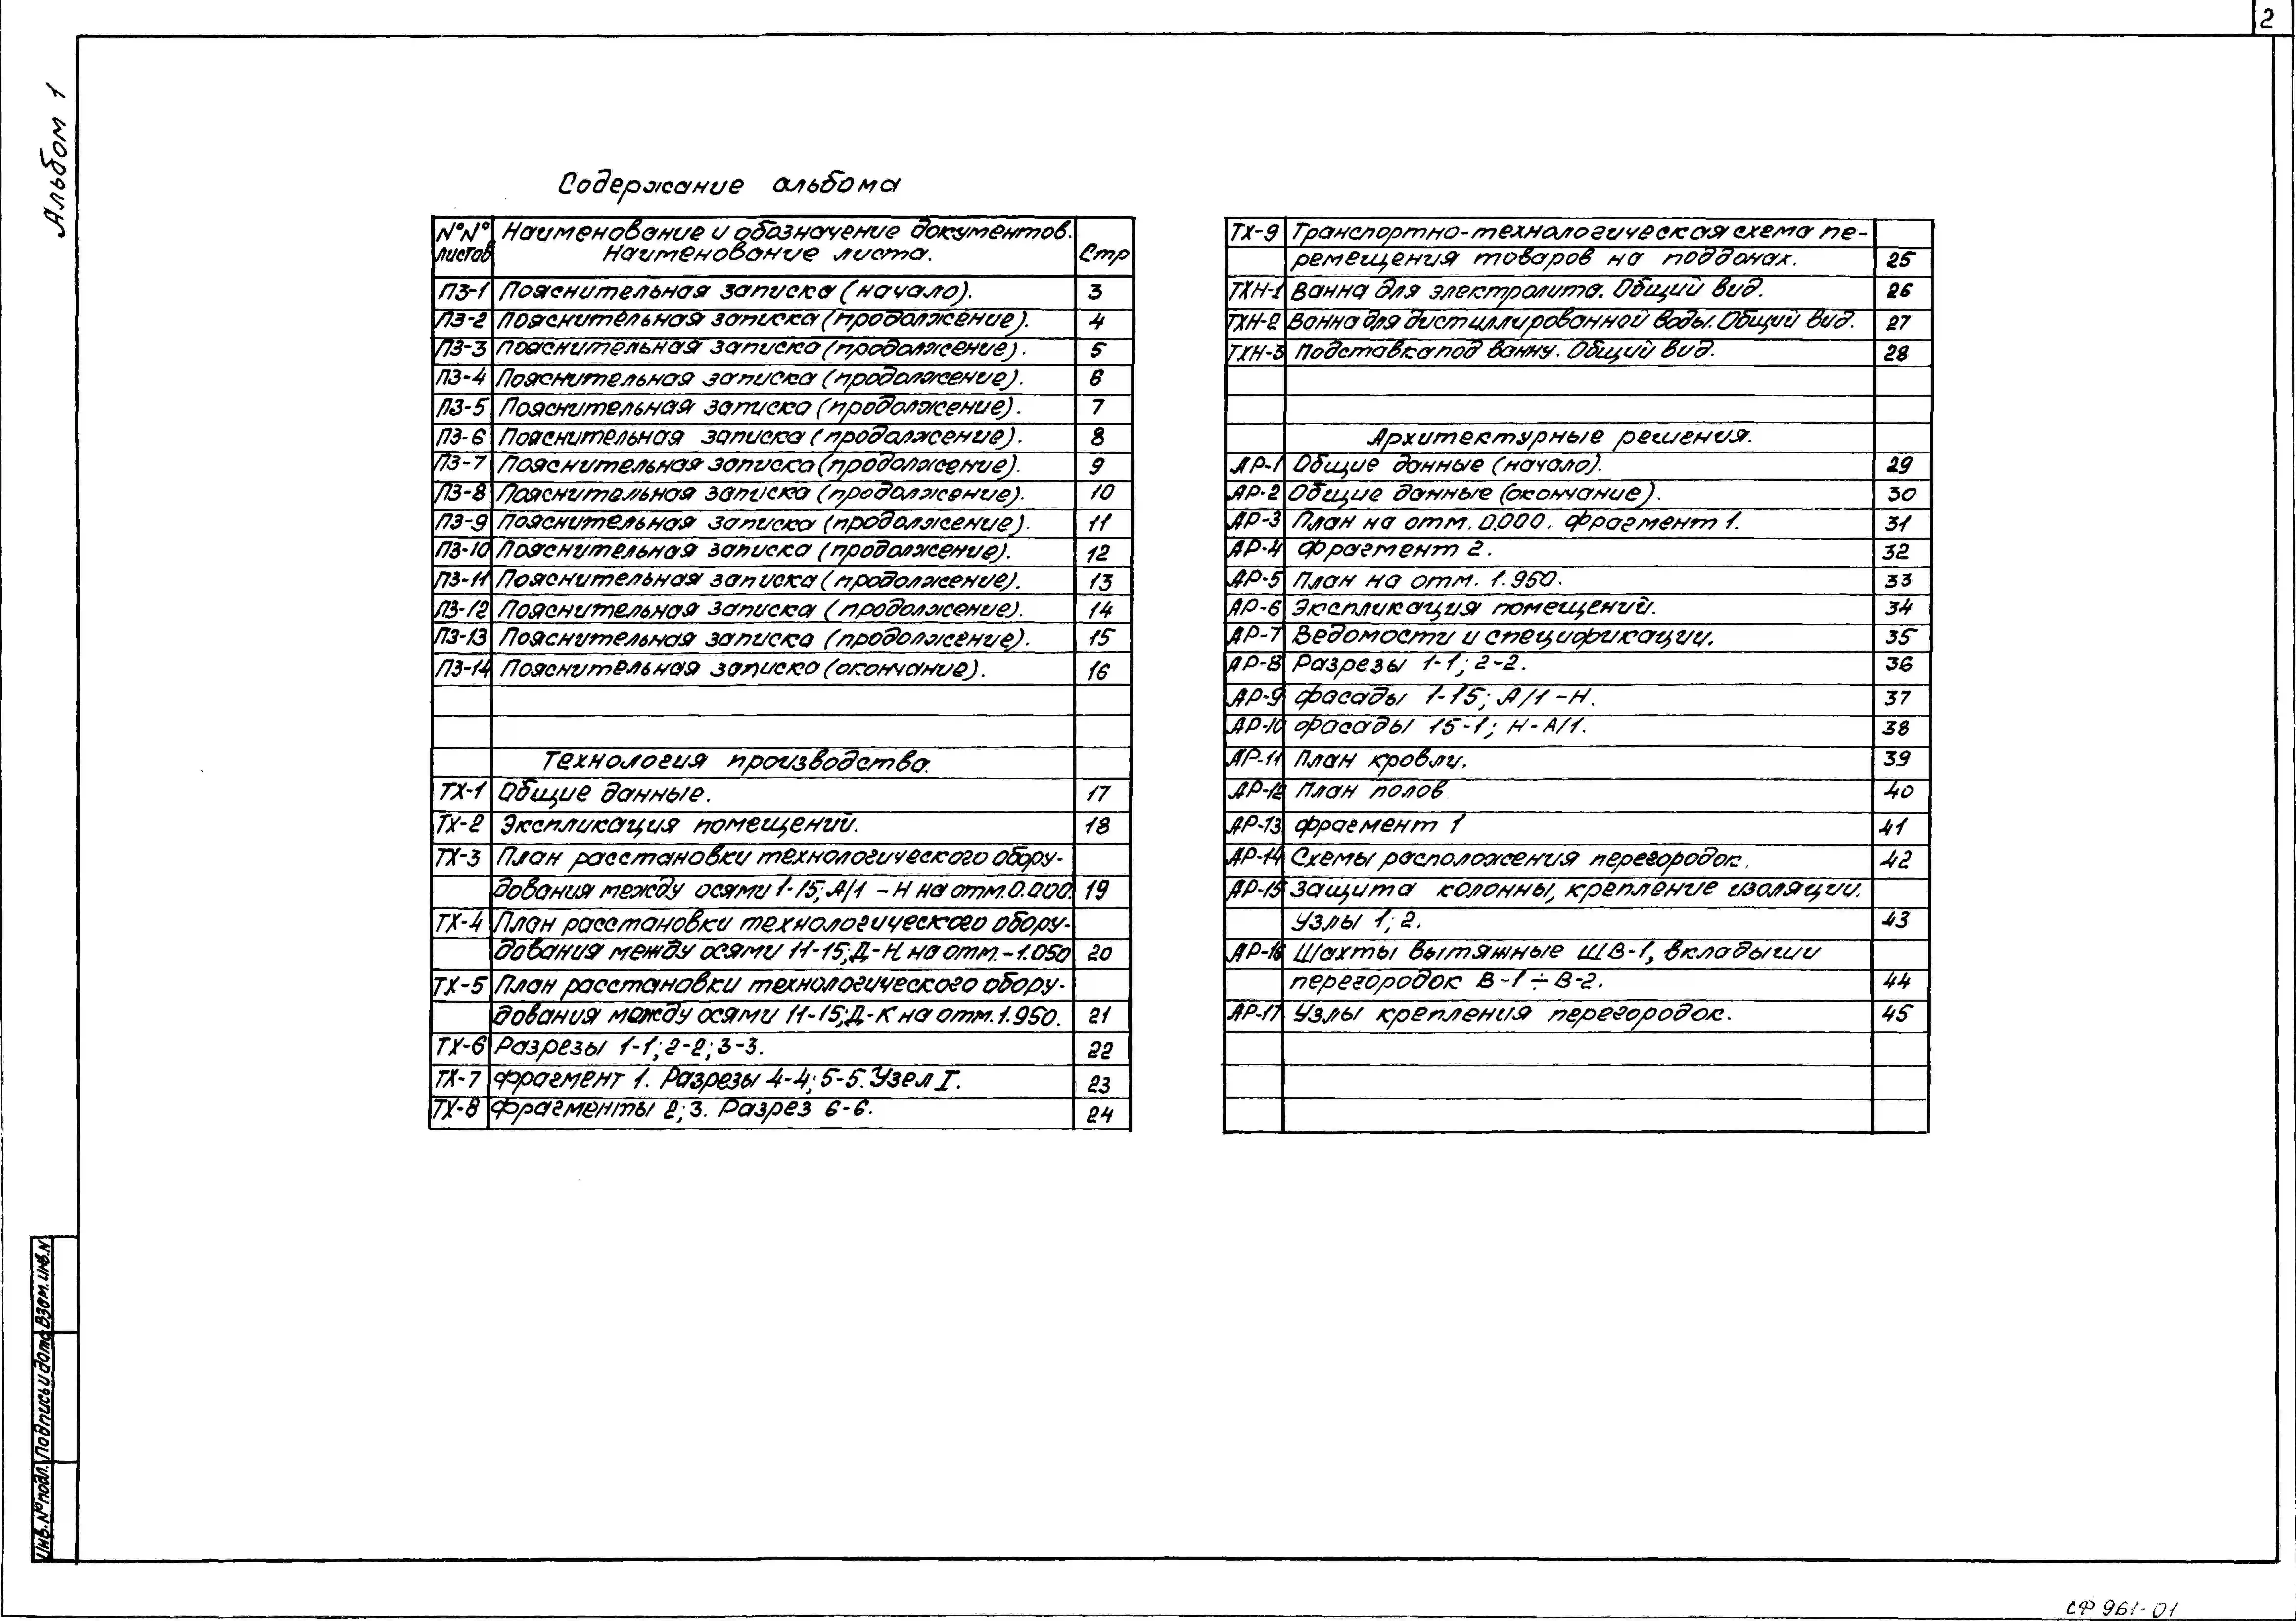 2
Альбом 1
Содержание альбома
№№ листов Наименование и обозначение документов. Наименование листа. Стр
ПЗ-1 Пояснительная записка (начало). 3
ПЗ-2 Пояснительная записка (продолжение). 4
ПЗ-3 Пояснительная записка (продолжение). 5
ПЗ-4 Пояснительная записка (продолжение). 6
ПЗ-5 Пояснительная записка (продолжение). 7
ПЗ-6 Пояснительная записка (продолжение). 8
ПЗ-7 Пояснительная записка (продолжение). 9
ПЗ-8 Пояснительная записка (продолжение). 10
ПЗ-9 Пояснительная записка (продолжение). 11
ПЗ-10 Пояснительная записка (продолжение). 12
ПЗ-11 Пояснительная записка (продолжение). 13
ПЗ-12 Пояснительная записка (продолжение). 14
ПЗ-13 Пояснительная записка (продолжение). 15
ПЗ-14 Пояснительная записка (окончание). 16
Технология производства.
ТХ-1 Общие данные. 17
ТХ-2 Экспликация помещений. 18
ТХ-3 План расстановки технологического обору-
дования между осями 1-15; А/1 - Н на отм. 0.000. 19
ТХ-4 План расстановки технологического обору-
дования между осями 11-15; Д-Н на отм. -1.050 20
ТХ-5 План расстановки технологического обору-
дования между осями 11-15; Д-К на отм. 1.950. 21
ТХ-6 Разрезы 1-1; 2-2; 3-3. 22
ТХ-7 Фрагмент 1. Разрезы 4-4; 5-5. Узел I. 23
ТХ-8 Фрагменты 2; 3. Разрез 6-6. 24
ТХ-9 Транспортно-технологическая схема пе-
ремещения товаров на поддонах. 25
ТХН-1 Ванна для электролита. Общий вид. 26
ТХН-2 Ванна для дистиллированной воды. Общий вид. 27
ТХН-3 Подставка под ванну. Общий вид. 28
Архитектурные решения.
АР-1 Общие данные (начало). 29
АР-2 Общие данные (окончание). 30
АР-3 План на отм. 0.000. Фрагмент 1. 31
АР-4 Фрагмент 2. 32
АР-5 План на отм. 1.950. 33
АР-6 Экспликация помещений. 34
АР-7 Ведомости и спецификации. 35
АР-8 Разрезы 1-1; 2-2. 36
АР-9 Фасады 1-15; А/1-Н. 37
АР-10 Фасады 15-1; Н-А/1. 38
АР-11 План кровли. 39
АР-12 План полов 40
АР-13 Фрагмент 1 41
АР-14 Схемы расположения перегородок. 42
АР-15 Защита колонны, крепление изоляции.
Узлы 1; 2. 43
АР-16 Шахты вытяжные ШВ-1, вкладыши
перегородок В-1÷В-2. 44
АР-17 Узлы крепления перегородок. 45
Инв. № подл. Подпись и дата Взам. инв. N
СФ 961-01